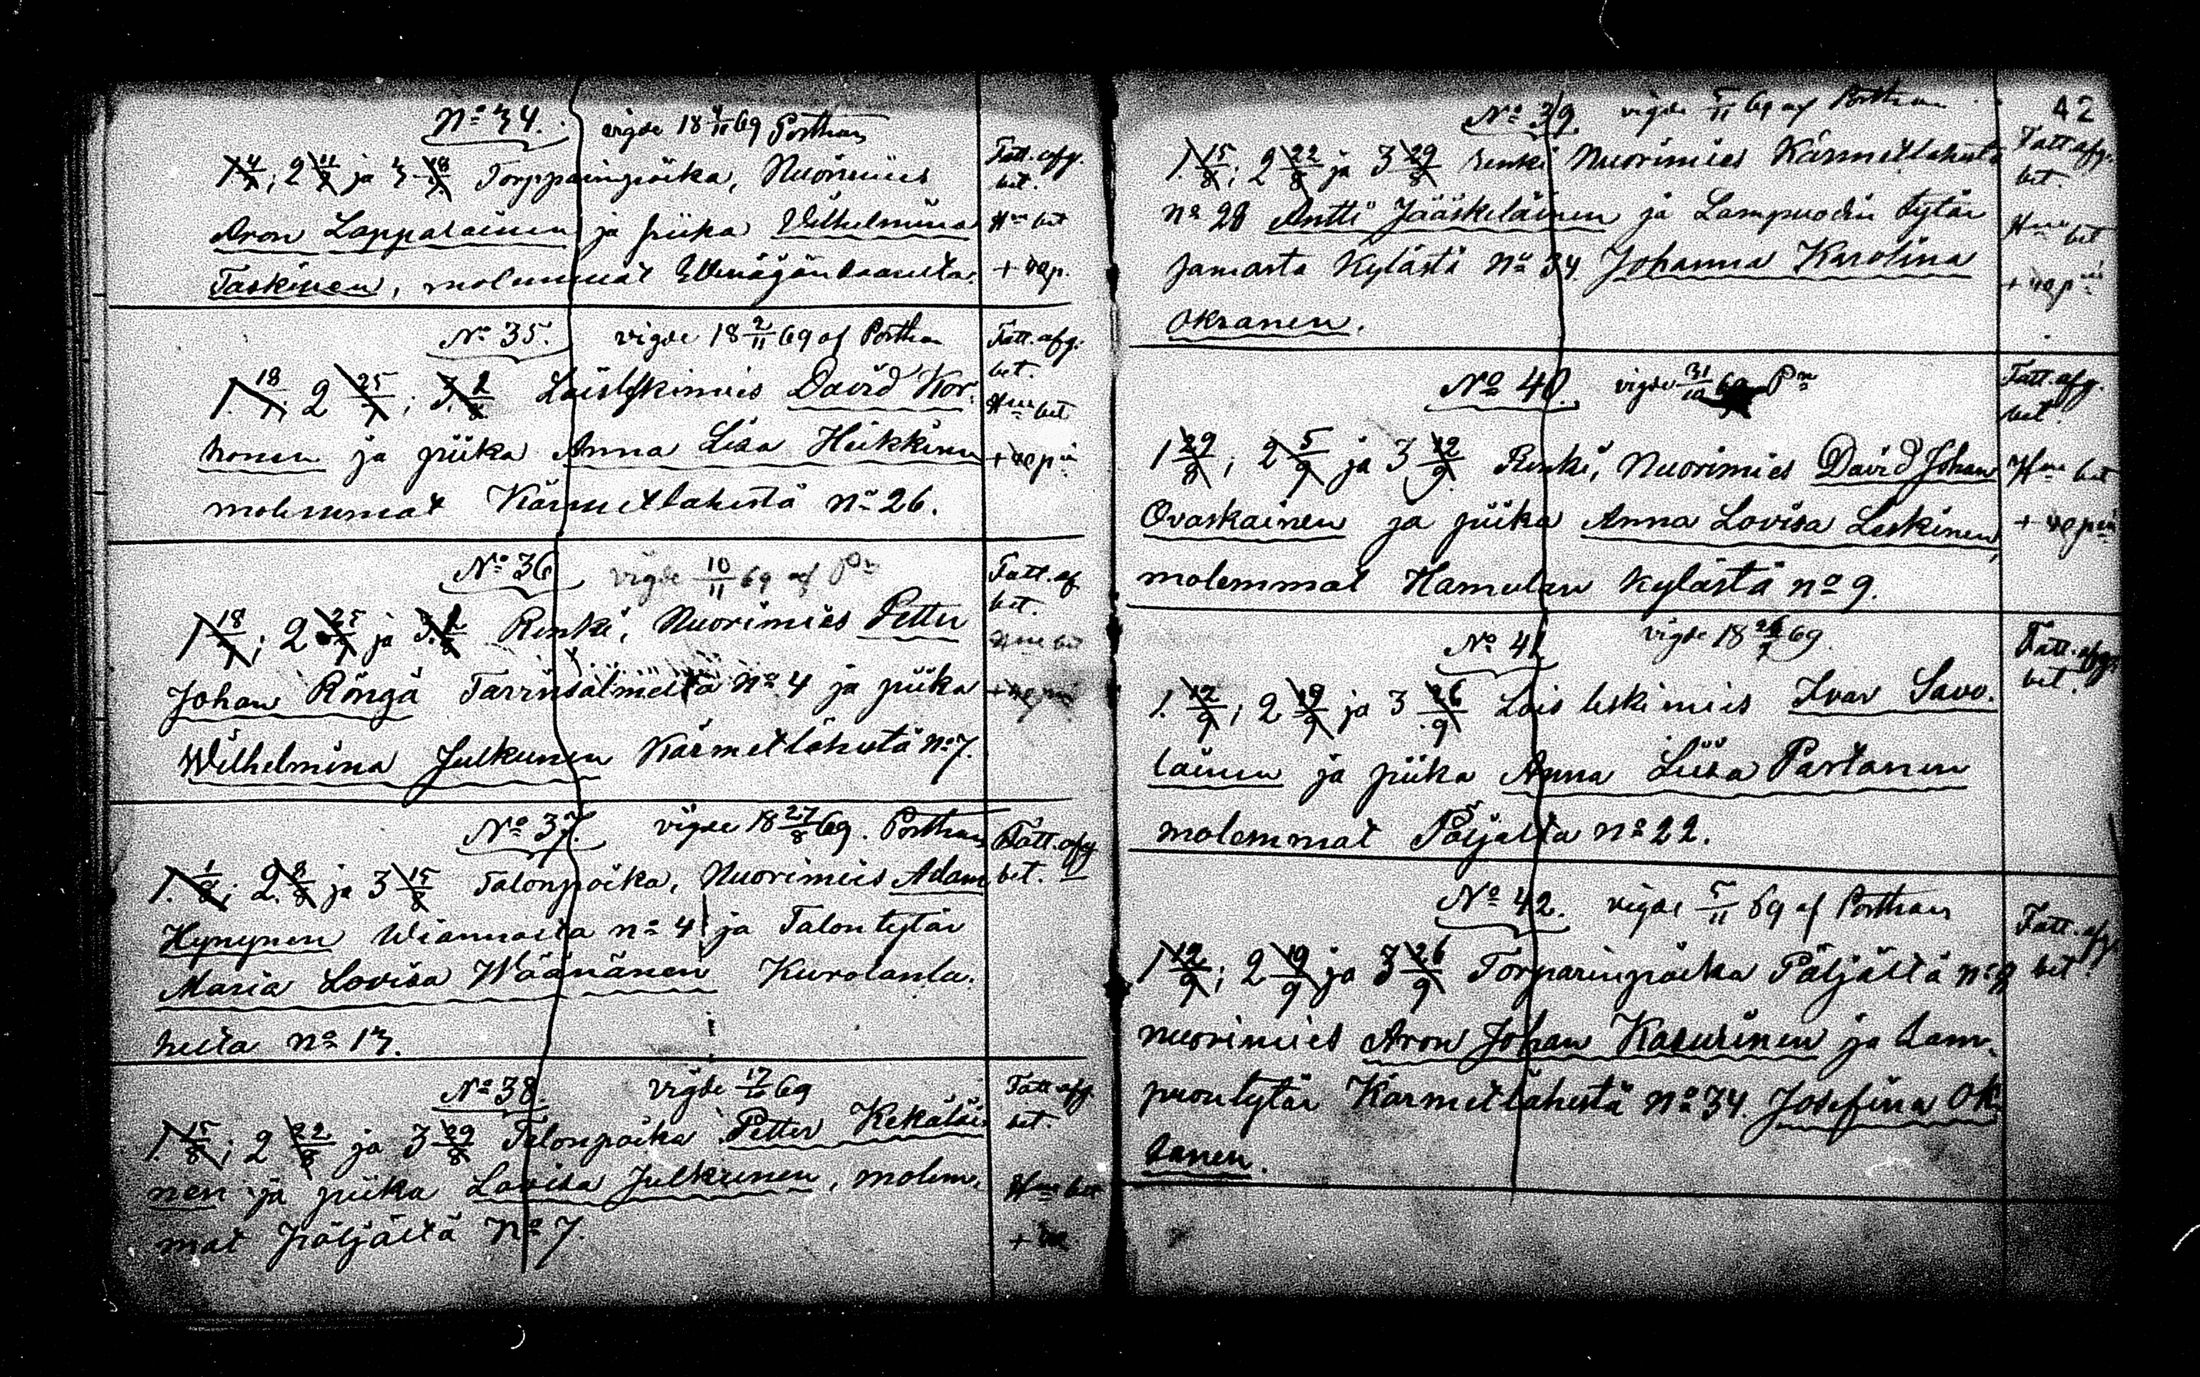 No 34. vigde 18 4/11 69 Porthan
1 4/7; 2 11/7 ja 3 18/7 Torpparinpoika, Nuorimies
Aron Lappalainen ja piika Vilhelmina
Taskinen, molemmat
Fatt. afg.
bet.
Hm bet
+ vep.
No 35. vigde 18 2/11 69 af Porthan
1. 18/7; 2 25/7; 3. 1/8 Loisleskimies David Kor-
honen ja piika Anna Lisa Heikkinen
molemmat Kärmetlahesta no 26.
Fatt. afg.
bet.
Hm bet
+ vep
No 36 vigde 10/11 69 af Pn
1 18/7; 2 25/7 ja 3. 1/8 Renki, Nuorimies Petter
Johan Röngä no 4 ja piika
Wilhelmina Julkunen Kärmetlahesta no 7.
Fatt. af
bet.
Hm bet
No 37. vigde 18 27/8 69. Porthan
1. 1/8; 2. 8/8 ja 3 15/8 Talonpoika, Nuorimies Adam
Hynynen Wiannosta no 4 ja Talon tytär
Maria Lovisa Wäänänen Kurolanla-
hesta no 13.
Fatt. afg
bet.
No 38. vigde 17/10 69
1. 15/8; 2 22/8 ja 3 29/8 Talonpoika Petter Kekäläi-
nen ja piika Lovisa Julkunen, molem-
mat Pöljältä No 7.
Fatt afg
bet.
Hm bet
42
No 39. vigde 5/11 69 af Porthan
1. 15/8; 2 22/8 ja 3 29/8 renki Nuorimies Kärmetlahesta
no 28 Antti Jääskeläinen ja Lampuodin tytär
samasta Kylästä No 34 Johanna Karolina
Okranen.
Fatt afg.
bet.
Hm bet
+ vep
No 40. vigde 31/10 69 Pn
1 29/8; 2 5/9 ja 3 12/9 Renki, Nuorimies David Johan
Ovaskainen ja piika Anna Lovisa Leskinen,
molemmat Hamulan Kylästä no 9.
Fatt. afg.
bet.
Hm bet
+ vep
No 41 vigde 18 26/9 69.
1. 12/9; 2 19/9 ja 3 26/9 Lois leskimies Ivar Savo-
lainen ja piika Anna Liisa Partanen
molemmat Pöljältä no 22.
Fatt. afg.
bet.
No 42. vigde 5/11 69 af Porthan
1 12/9; 2 19/9 ja 3 26/9 Torparinpoika Pöljältä no 9
nuorimies Aron Johan Kasurinen ja Lam-
puontytär Kärmetlahesta no 34. Josefina Ok-
ranen.
Fatt. afg.
bet